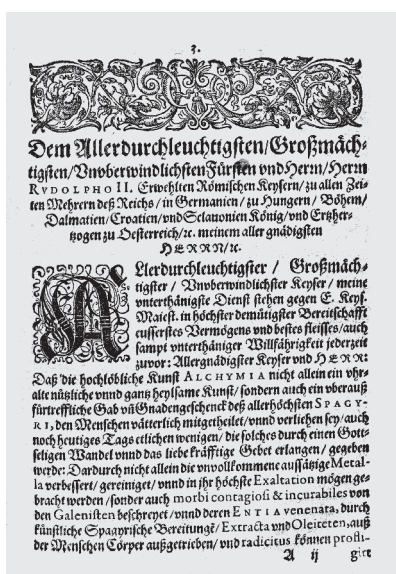 3.
Dem Allerdurchleuchtigsten/Großmäch-
tigsten/Vnvberwindlichsten Fürsten vnd Herrn/Herrn
RVDOLPHO II. Erwehlten Römischen Keysern/zu allen Zei-
ten Mehrern deß Reichs/in Germanien/zu Hungern/Böhem/
Dalmatien/Croatien/vnd Sclauonien König/vnd Ertzher-
tzogen zu Oesterreich/ꝛc. meinem aller gnädigsten
HERRN/ꝛc.
ALlerdurchleuchtigster / Großmäch-
tigster / Vnvberwindlichster Keyser / meine
vnterthänigste Dienst stehen gegen E. Keys.
Maiest. in höchster demütigster Bereitschafft
eusserstes Vermögens vnd bestes fleisses/auch
sampt vnterthäniger Willfährigkeit jederzeit
zuvor: Allergnädigster Keyser vnd HERR:
Daß die hochlöbliche Kunst ALCHYMIA nicht allein ein vhr-
alte nützliche vnnd gantz heylsame Kunst/sondern auch ein vberauß
fürtreffliche Gab vñ Gnadengeschenck deß allerhöchsten SPAGY-
RI, den Menschen vätterlich mitgetheilet/vnnd verliehen sey/auch
noch heutiges Tags etlichen wenigen/die solches durch einen Gott-
seligen Wandel vnnd das liebe kräfftige Gebet erlangen/gegeben
werde: Dardurch nicht allein die vnvollkommene aussätzige Metal-
la verbessert/gereiniget/vnnd in jhr höchste Exaltation mögen ge-
bracht werden/sonder auch morbi contagiosi & incurabiles von
den Galenisten beschreyet/vnnd deren ENTIA venenata, durch
künstliche Spagyrische Bereitungẽ/Extracta vnd Oleiteten,auß
der Menschen Cörper außgetrieben/vnd radicitus können prosti-
A ij giert